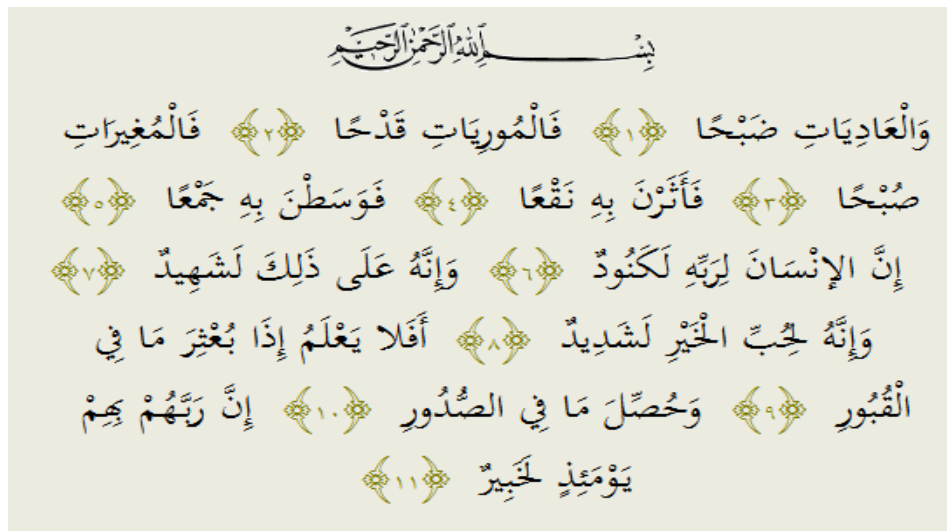 بِسْمِ اللَّهِ الرَّحْمَٰنِ الرَّحِيمِ
وَالْعَادِيَاتِ ضَبْحًا ﴿١﴾ فَالْمُورِيَاتِ قَدْحًا ﴿٢﴾ فَالْمُغِيرَاتِ
صُبْحًا ﴿٣﴾ فَأَثَرْنَ بِهِ نَقْعًا ﴿٤﴾ فَوَسَطْنَ بِهِ جَمْعًا ﴿٥﴾
إِنَّ الإنْسَانَ لِرَبِّهِ لَكَنُودٌ ﴿٦﴾ وَإِنَّهُ عَلَى ذَلِكَ لَشَهِيدٌ ﴿٧﴾
وَإِنَّهُ لِحُبِّ الْخَيْرِ لَشَدِيدٌ ﴿٨﴾ أَفَلا يَعْلَمُ إِذَا بُعْثِرَ مَا فِي
الْقُبُورِ ﴿٩﴾ وَحُصِّلَ مَا فِي الصُّدُورِ ﴿١٠﴾ إِنَّ رَبَّهُمْ بِهِمْ
يَوْمَئِذٍ لَخَبِيرٌ ﴿١١﴾